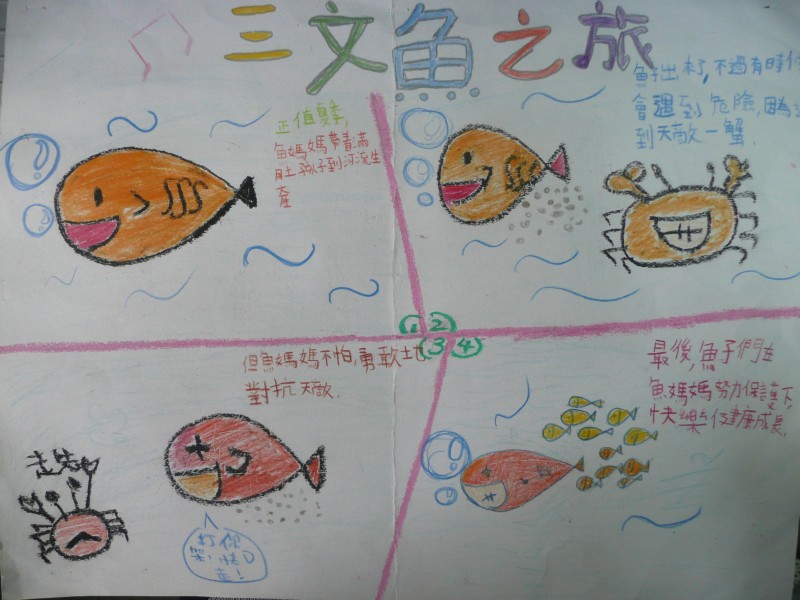 三文魚之旅
正值冀,
魚媽媽帶着滿
肚孩子到河流生
產
魚找出村,不過有時候
會遇到危險,因為
到天敵一蟹.
1 2
3 4
但魚媽媽不怕,勇敢土地
對抗天敵.
走知
你
快
走!
最後,魚子們在
魚媽媽努力保護下,
快樂健康成長.